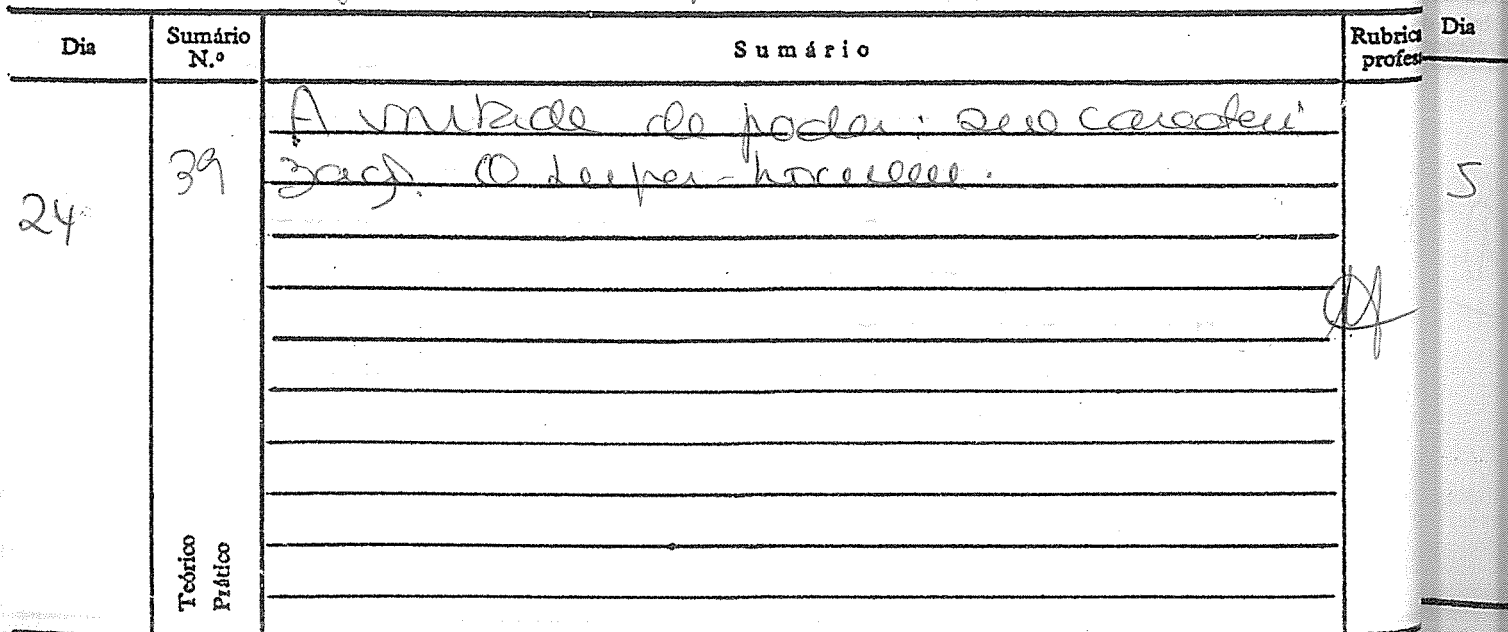 Dia Sumário N.º Sumário Rubrica profes Dia
24 39 A vontade de poder: sua caracteri
zação. O super-homem.
5
Teórico
Prático